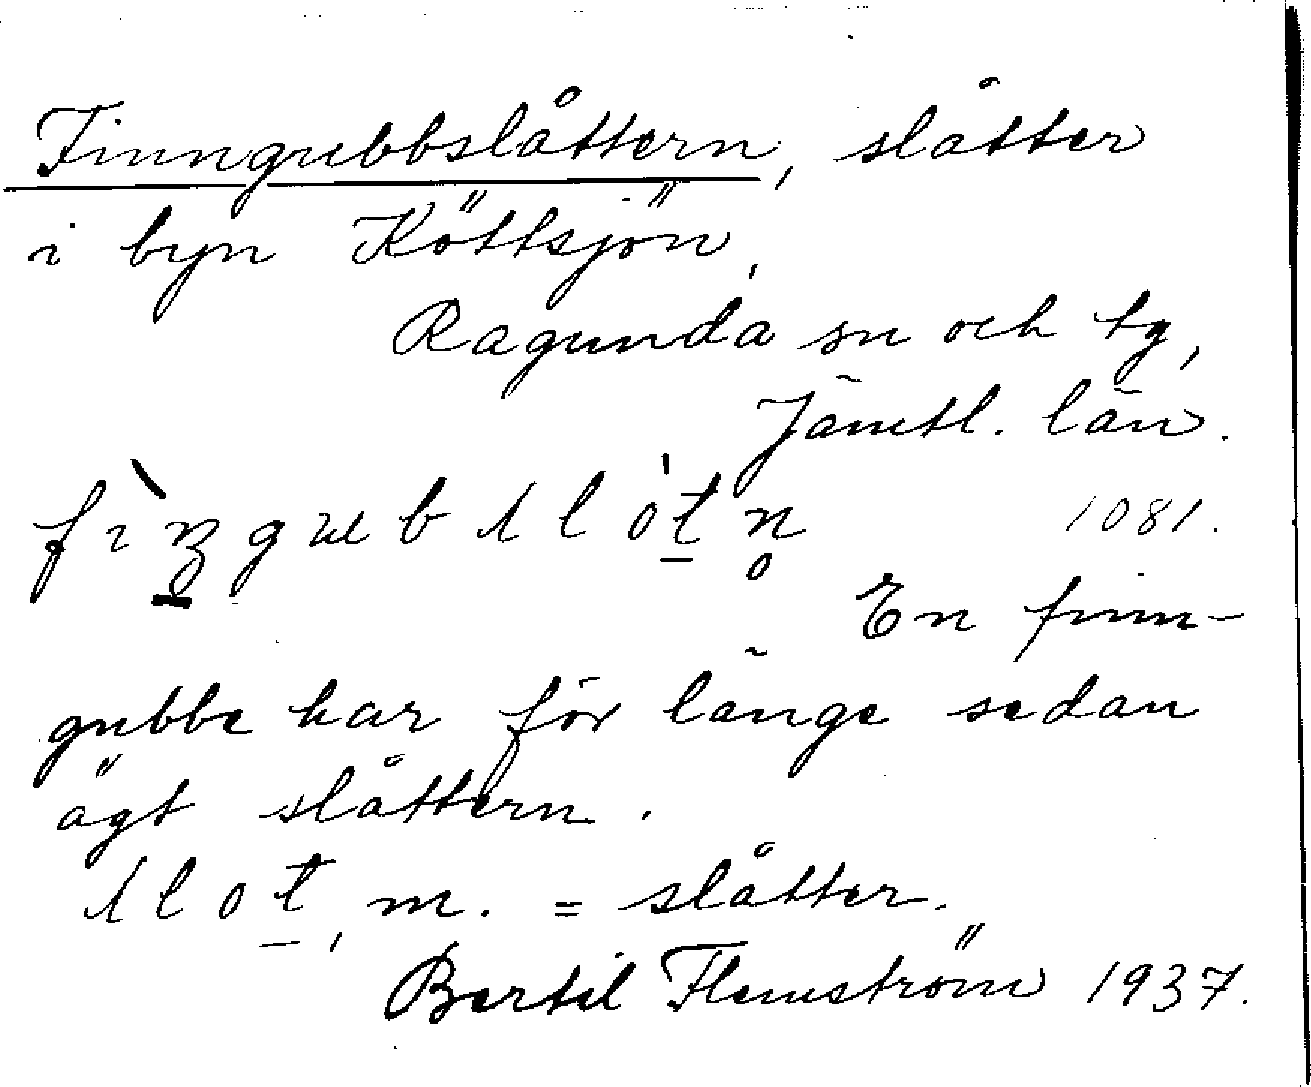 Finngubbslåttern, slåtter
i byn Köttsjön,
Ragunda sn och tg,
Jämtl. län.
1081.
En finn-
gubbe har för länge sedan
ägt slåttern.
m. = slåtter.
Bertil Flemström 1937.